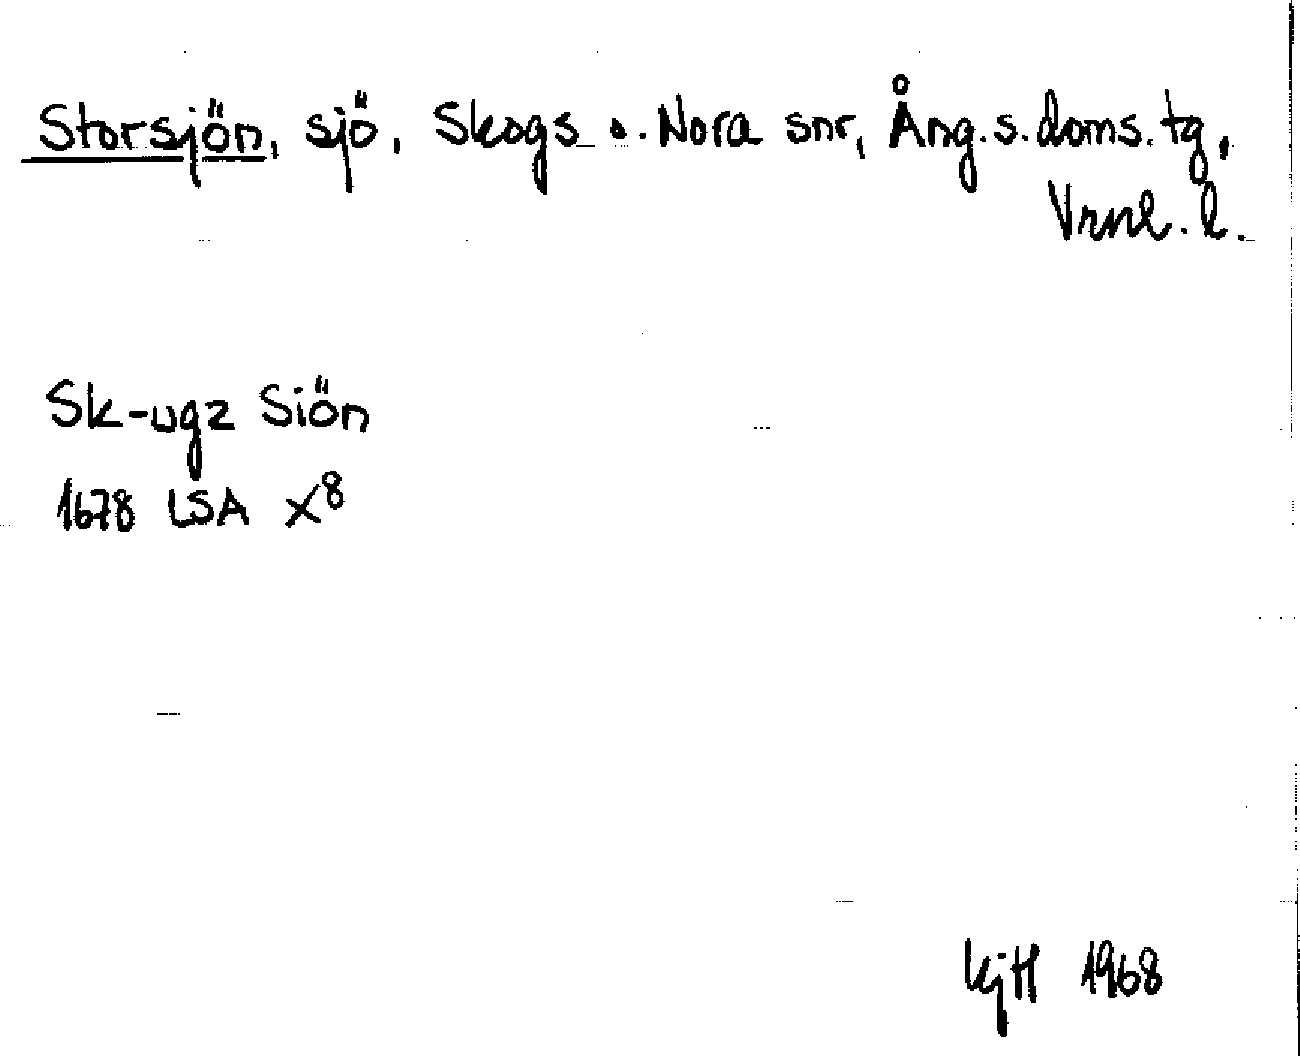 Storsjön, sjö, Skogs o. Nora snr, Ång.s.doms.tg,
Vrnl. l.
Sk-ugz Siön
1678 LSA X⁸
KjH 1968